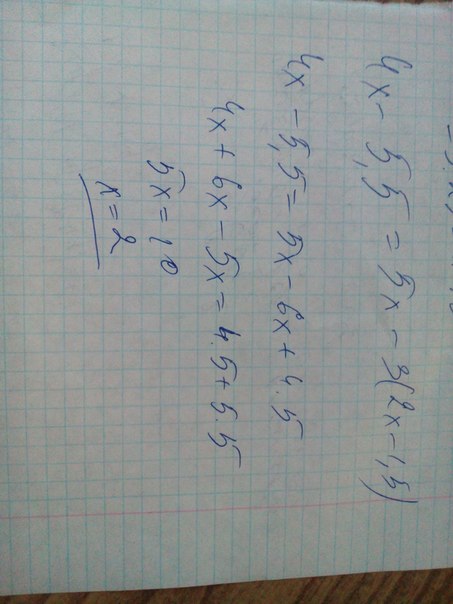 4x - 5,5 = 5x - 3(2x - 1,5)
4x - 5,5 = 5x - 6x + 4.5
4x + 6x - 5x = 4.5 + 5.5
5x = 10
x = 2